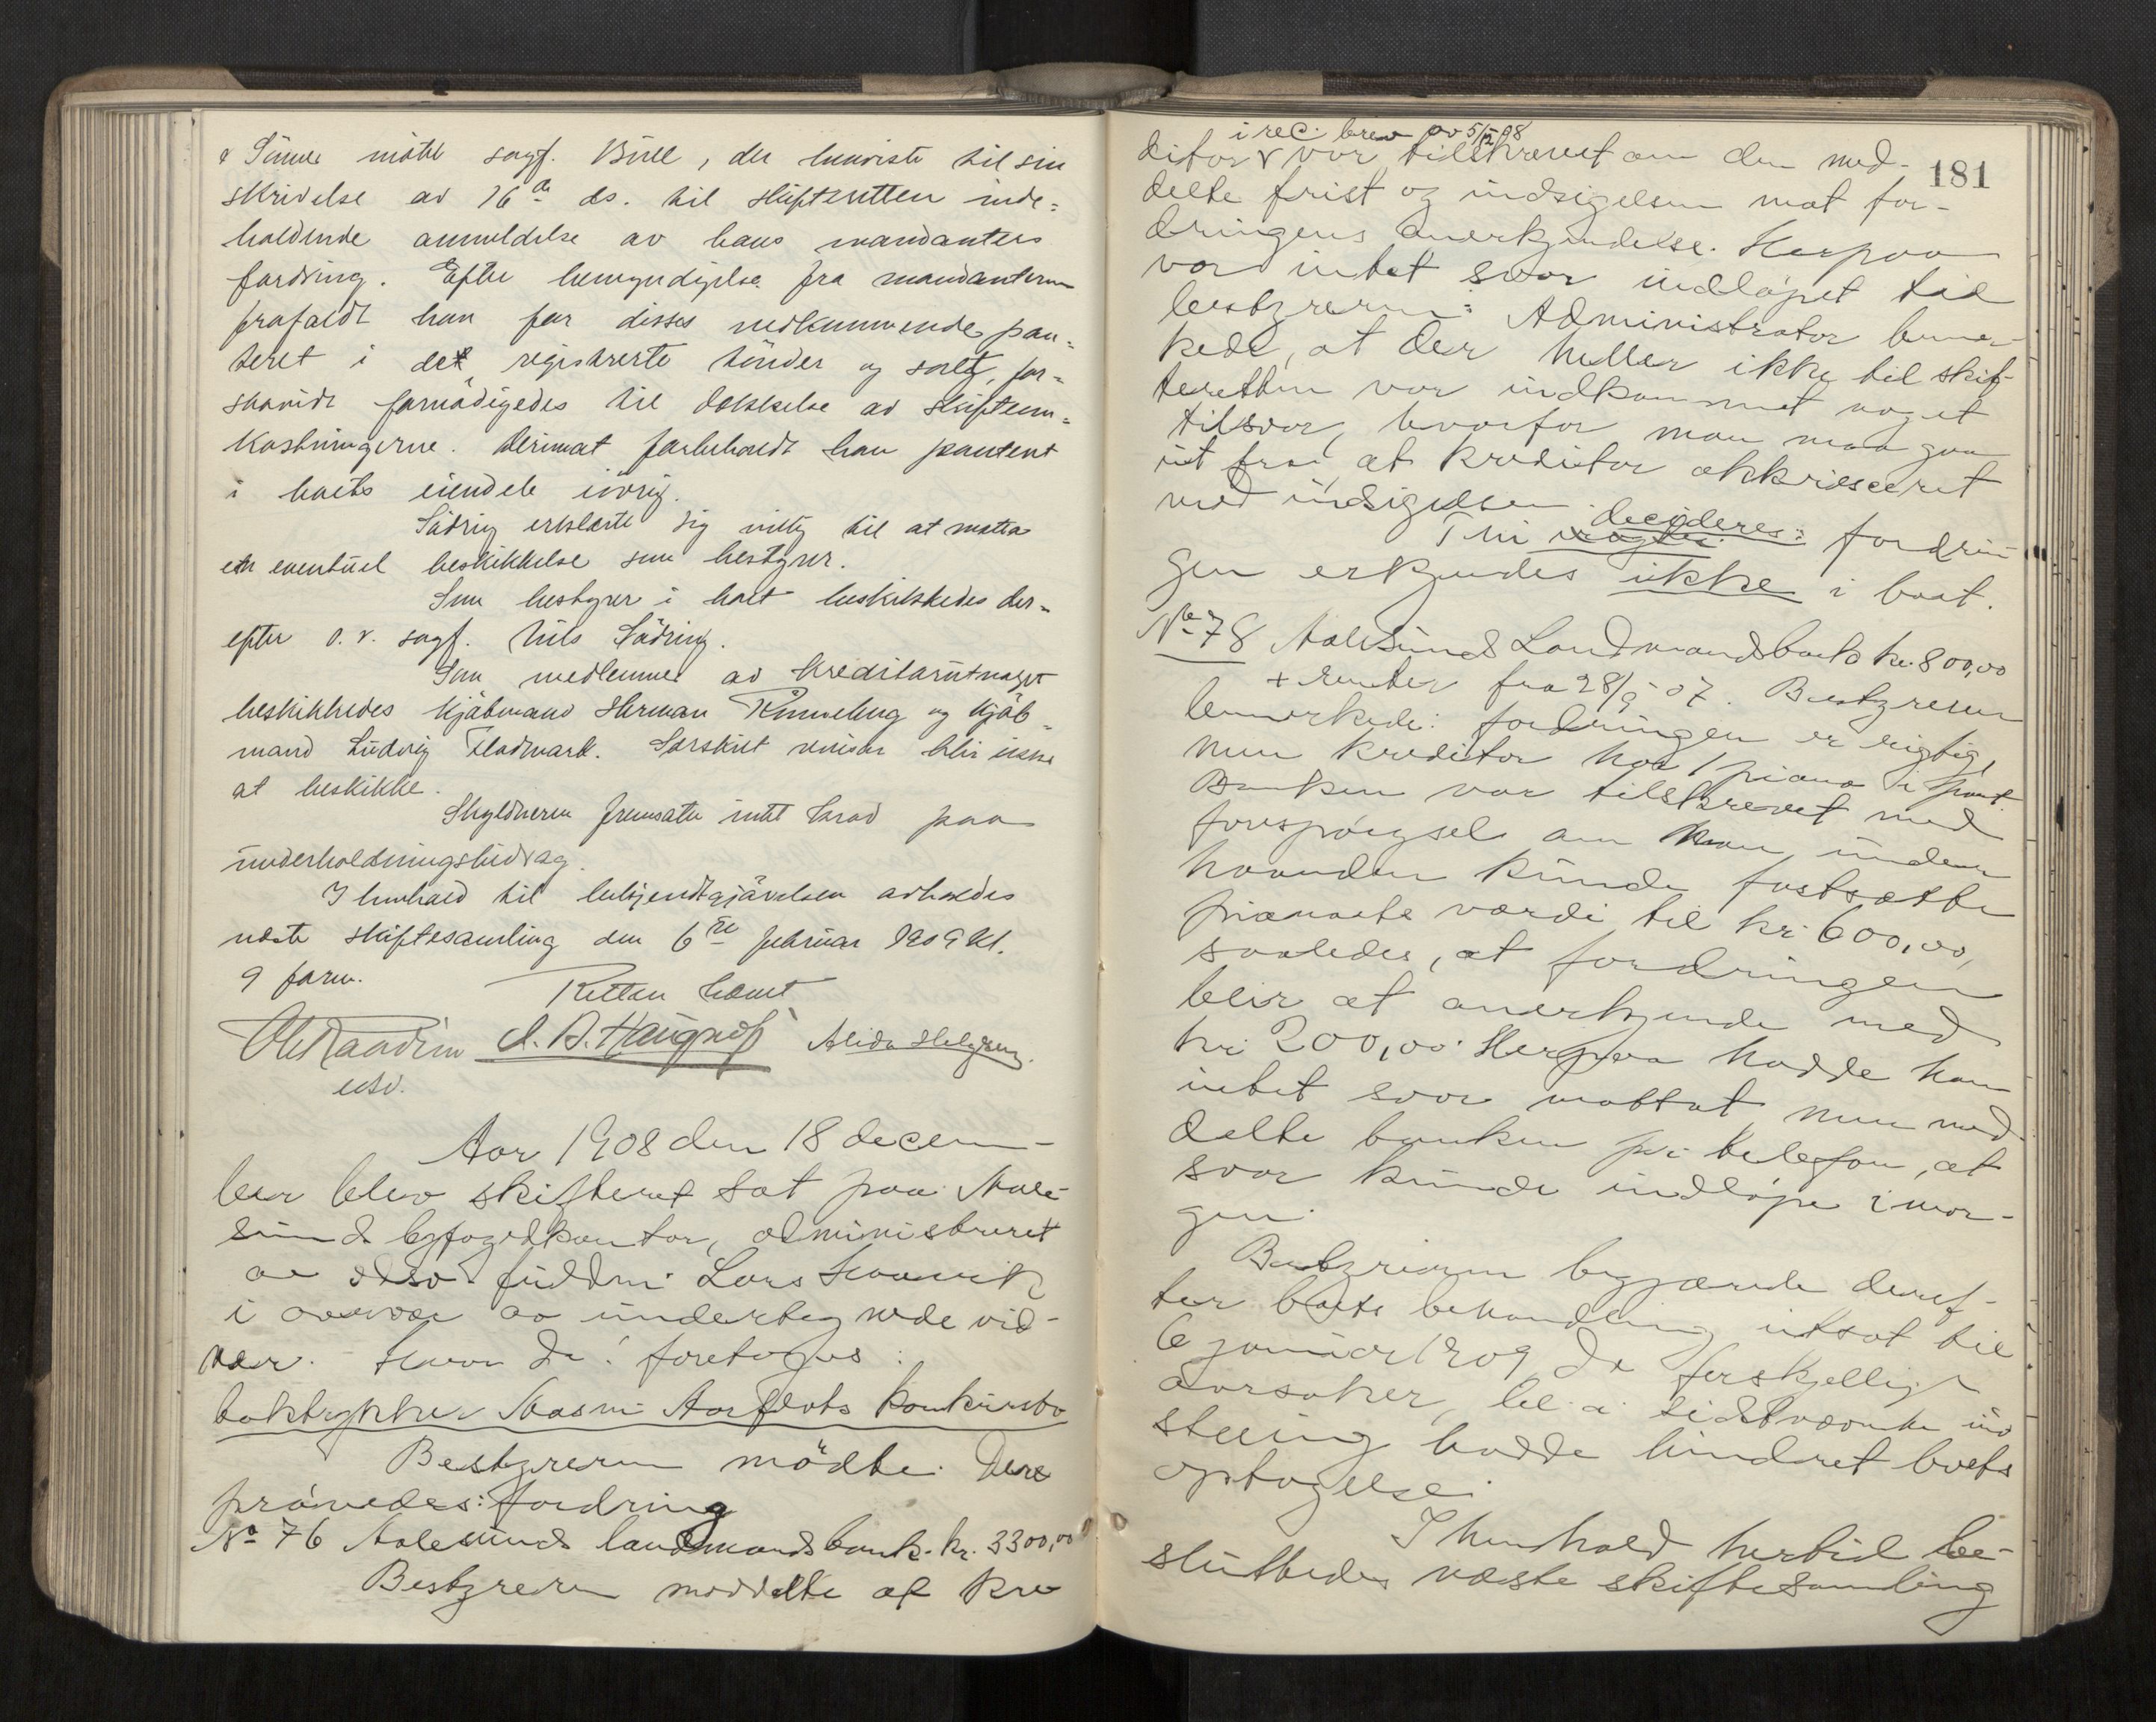 & Sønner møtte sagf. Bull, der henviste til sin
skrivelse av 16de ds. til skifteretten inde=
holdende anmeldelse av hans mandanters
fordring. Efter bemyndigelse fra mandanterne
frafaldt han for disses vedkommende pan=
teret i det registrerte tønder og salt, for=
saavidt fornødigedes til dækkelse av skifteom=
kostningerne. Derimot forbeholdt han panteret
i boets eiendele iøvrig.
Sæding erklærte sig villig til at motta
en eventuel beskikkelse som bestyrer.
Som bestyrer i boet beskikkedes der=
efter o.r. sagf. Nils Sæding.
Som medlemmer av kreditorutvalget
beskikkedes kjøbmand Herman Rønneberg og kjøb=
mand Ludvig Fladmark. Særskilt revisor blir ikke
at beskikke.
Skyldneren fremsatte intet krav paa
underholdningsbidrag.
I henhold til bekjendtgjørelsen avholdes
næste skiftesamling den 6te februar 1909 kl.
9 form.
Retten hævet
Ol. Raadim A. B. Haugnæss Alida Helgesen.
cst.
Aar 1908 den 18 decem-
ber blev skifteret sat paa Aale-
sunds byfogedkontor, administreret
av edsv. fuldm. Lars Haavik
i overvær av undertegnede vid-
ner. Hvor da! foretoges:
boktrykker Rasm. Aarflots konkursbo
Bestyreren mødte. Der
prøvedes: fordring
No 76 Aalesunds landmandsbank. kr. 3300,00
Bestyreren meddelte at kre
181
i rec. brev av 5/12 08
ditor var tilskrevet om den med-
delte frist og indsigelsen mot for-
dringens anerkjendelse. Herpaa
var intet svar indløpet til
bestyreren. Administrator bemer-
kede, at der heller ikke til skif-
teretten var indkommet noget
tilsvar, hvorfor man maa gaa
ut fra, at kreditor akkviesceret
ved indsigelsen.
decideres:
Thi fordrin-
gen erkjendes ikke i boet.
No 78 Aalesunds Landmandsbank kr. 800,00
+ renter fra 28/9-07. Bestyreren
bemerkede: fordringen er rigtig,
men kreditor har 1 piano i pant.
Banken var tilskrevet med
forespørgsel om man under
haanden kunde fastsætte
pianoets værdi til kr. 600,00,
saaledes, at fordringen
blir at anerkjende med
kr. 200,00. Herpaa hadde han
intet svar mottat men med-
delte banken pr. telefon, at
svar kunde indløpe imor-
gen.
Bestyreren begjærede deref-
ter boets behandling utsat til
6 januar 1909 da forskjellige
aarsaker, bl. a. sidstnævnte ind
stilling hadde hindret boets
optagelse.
I henhold hertil be-
sluttedes næste skiftesamling